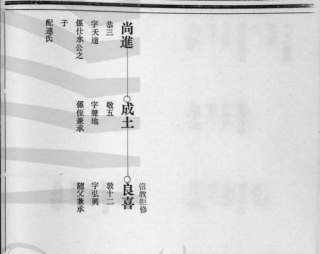 尚進
恭三
字天達
係仕永公之
子
配連氏
成土
敬五
字聲地
係侄兼承
良喜
信教拒修
敦十二
字弘興
隨父兼承